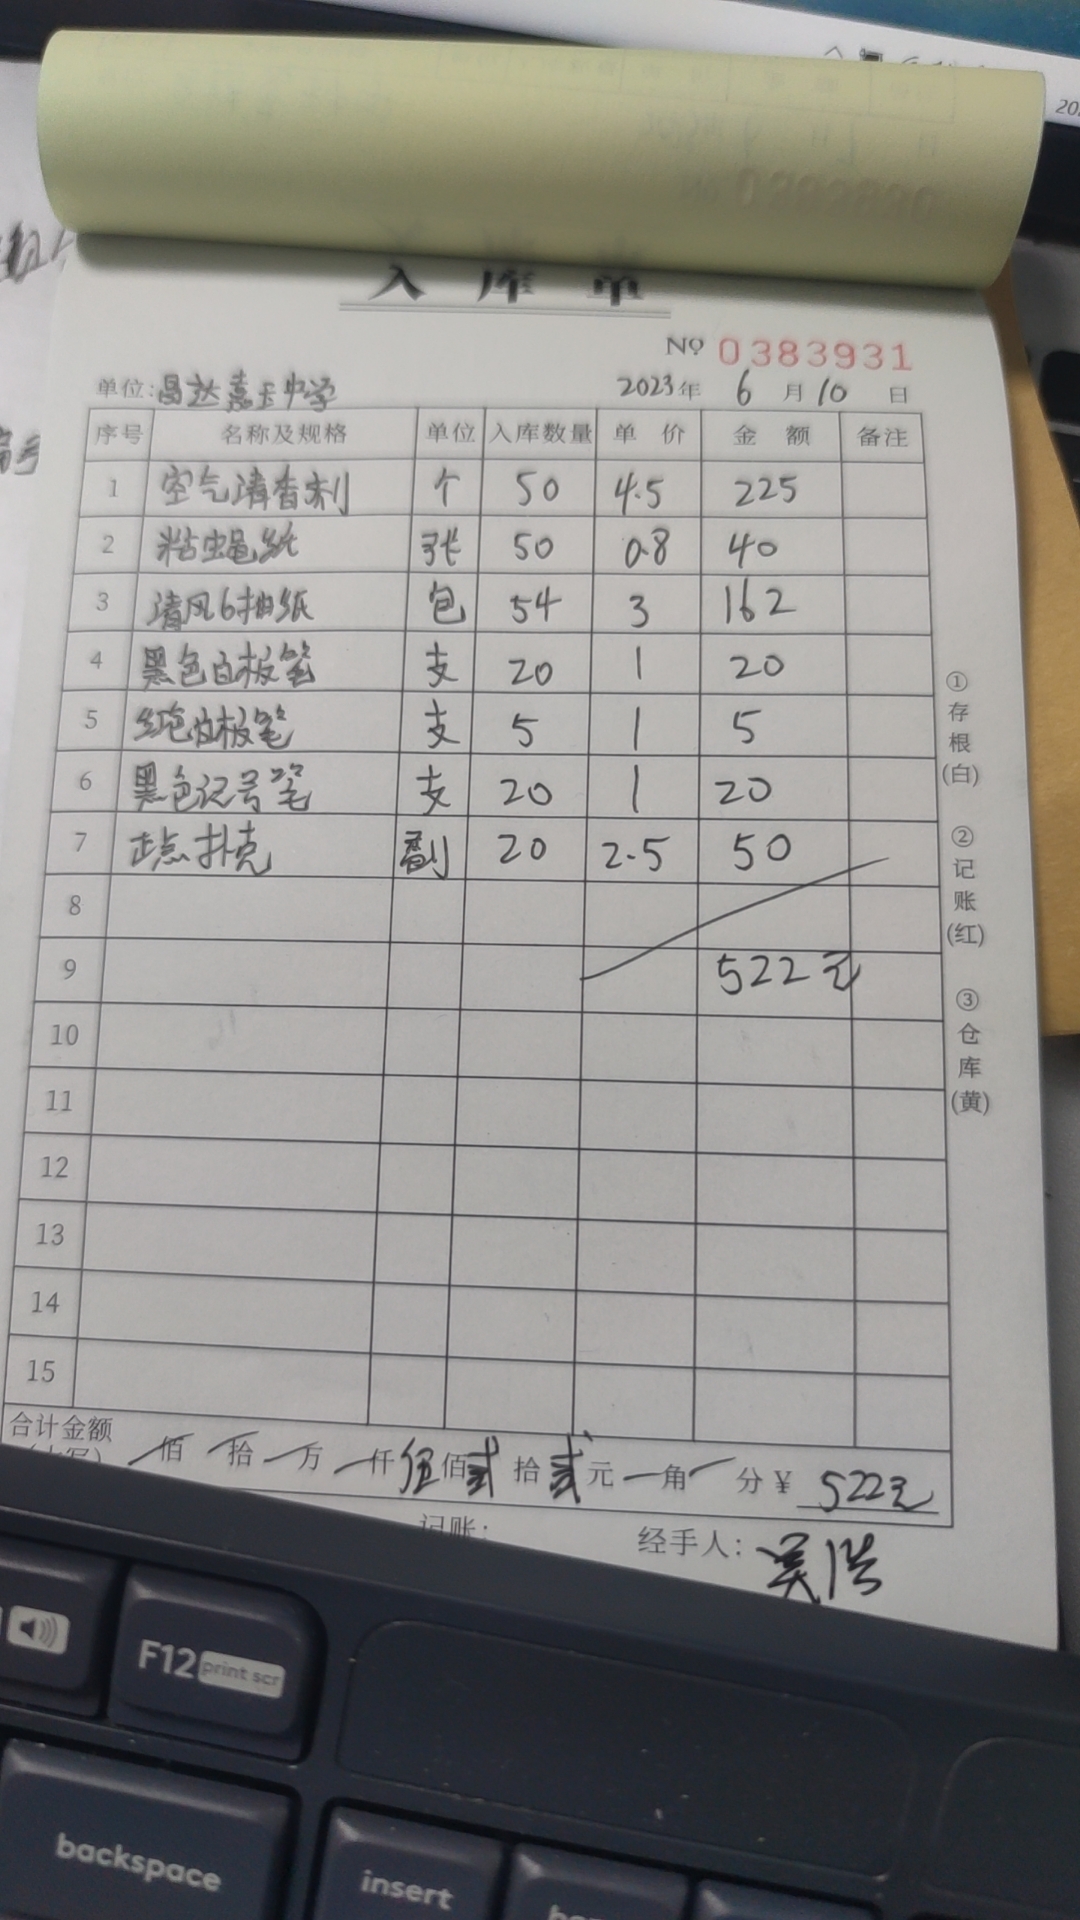 入库单
№ 0383931
单位:昌达嘉玉中学 2023年 6 月 10 日
序号 名称及规格 单位 入库数量 单价 金额 备注
1 空气清香剂 个 50 4.5 225
2 粘蝇纸 张 50 0.8 40
3 清风6抽纸 包 54 3 162
4 黑色白板笔 支 20 1 20
5 红色白板笔 支 5 1 5
6 黑色记号笔 支 20 1 20
7 扑克 副 20 2.5 50
8
9 522元
10
11
12
13
14
15
合计金额
佰 拾 万 仟 伍佰 贰拾 贰元 角 分 ¥ 522元
记账: 经手人: 吴浩
①存根(白)
②记账(红)
③仓库(黄)
F12 print scr
backspace
insert